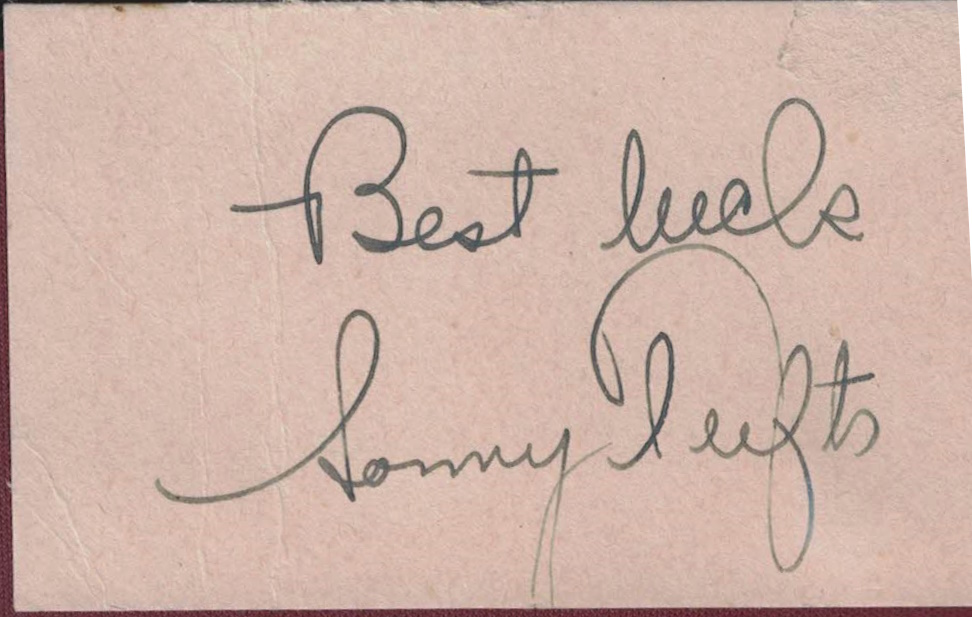 Best luck
Sonny Tufts